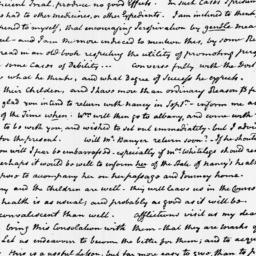 ficient Trial, produce no good Effects. In such Cases
had to other medicines, or other Expedients. I am inclined to think
mend to myself, that encouraging Perspiration by gentle
and I am the more induced to mention this, by some
read in an old book respecting the utility of promoting
some Cases of Debility... Converse fully with the
what he thinks, and what Degree of success he expects.
their Children, and I have more than ordinary Reason to
glad you intend to return with nancy in Septr. inform me
of the Time when. Wm. will then go to albany, and come with
to be with you, and wished to set out immediately. but I
for the present. will Mr. Munro return soon? If he should
you will I fear be embarrassed. especially if Mrs.
perhaps it would be well to inform her of the State of nancy's
pose to accompany her on her passage and Journey home.
and the children are well. they will leave us in the Course
health is as usual; and probably as good as it will be.
convalescent than well. Afflictions visit us my dear
bring this Consolation with them. that they are
Let us endeavour to become the better for them; and to
this is a useful Lesson, but far more easy to give, than to